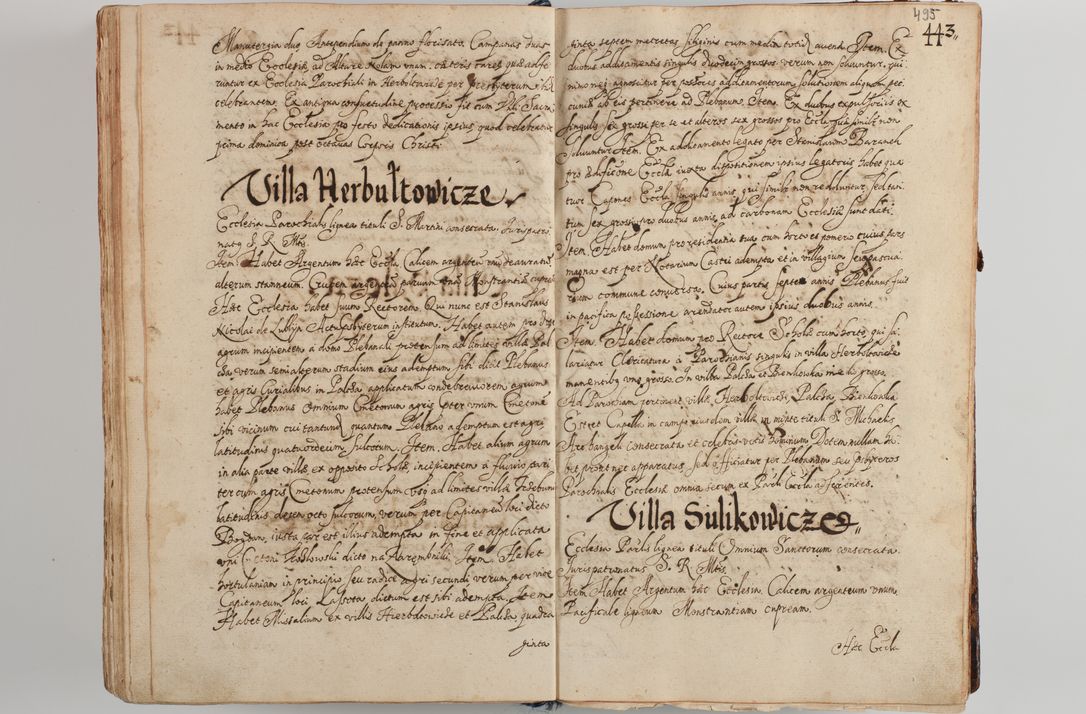 Manutergia duo Antependium de panno florisato Campanas duas
in medio Ecclesiæ ad Altare Nolam unam. cæteris caret, quæ adfe
runtur ex Ecclesia Parochiali in Herbultowicze per presbyterum ibi
celebrantem. Ex antiqua consuetudine processio fit cum Vbli Sacra
mento in hac Ecclesia pro festo dedicationis ipsius quod celebratur
prima dominica post octavas Corporis Christi
Villa Herbułtowicze
Ecclesia Parochialis lignea tituli S. Martini consecrata. Juris patro
natus S. R. Mtis.
Item Habet Argentum hæc Eccla Calicem argenteum inde auratum
alterum stanneum. Crucem argenteam parvam unam Monstrantia cuprea
Hæc Ecclesia habet suum Rectorem. Qui nunc est Stanislaus
Nicolai de Lublyn Actu presbyterum institutum. Habet autem pro dote
agrum incipientem a domo Plebanali protensum ad limites villæ Pal
cza verum semialterum stadium eius ademptum sibi dicit Plebanus
et agris Curialibus in Palcza applicatum
habet Plebanus Omnium Cmetonum agris præter unum Cmetonem
sibi vicinum cui tantund quantum Plebano ademptum est agri
latitudinis quatuordecim sulcorum. Item. Habet alium agrum
in alia parte villæ ex opposito Scholæ incipientem a fluvio pari
ter cum agris Cmetonum protensum usq ad limites villæ
latitudinis decem octo sulcorum, verum per Capitaneum loci dicto
Bogdan, iusta pars est illius adempta in fine et applicata
uni Cmetoni Kozłowski dicto na Item. Habet
hortulaniam in principio seu radice agri secundi verum per vice
Capitaneum loci Lassota dictum est sibi adempta. Item
Habet Missalium ex villis Hierboltowicze et Palcza quadra
ginta
495
443
ginta septem mensuras siliginis cum media totid avenæ Item. Ex
duobus addicamentis singulis duodecim grossos verum non soluuntur. qui
nimo nec agnoscitur per possessores addicamentorum solutionem aliquam pec
cuniæ ab eis pertinere ad Plebanum. Item. Ex duobus expulsoriis ex
singulis sex grossi per se et alteros sex grossos pro Eccla quæ similr non
soluuntur Item. Ex addicamento legato per Stanislaum Baranek
pro ædificone Ecclæ iuxta dispositionem ipsius legatoris habet qua
tuor Capones Eccla singulis annis, qui similr non redduntur, sed tan
tum sex grossi pro duobus annis ad carbonam Ecclesiæ sunt dati
Item. Habet domum pro residentia sua cum horto et pomerio cuius pars
magna est per Notarium Castri adempta et in villagium seu pascua
rium commune conversa. Cuius partis septem annis Plebanus fuit
in pacifica possessione arendator autem ipsius duobus annis.
Item. Habet domum pro Rectore Scholæ cum horto, qui sa
lariatur Clericatura a Parochianis singulis in villa Herboltowicze
manentibus uno grosso. In villa Palcza et Bienkowka medio grosso.
Ad Parochiam pertinent villæ, Herboltowicze, Palcza, Bienkowka
Est et Capella in campo eiusdem villæ in monte tituli S. Michaelis
Archangeli consecrata et celebris votis hominum Dotem nullam ha
bet propter apparatus, sed officiatur per Plebanum seu prbyteros
Parochialis Ecclesiæ omnia secum ex Parli Eccla adferentes.
Villa Sulikowicze
Ecclesia Parlis lignea tituli Omnium Sanctorum consecrata
Juris patronatus S. R. Mtis.
Item Habet Argentum hæc Ecclesia Calicem argenteum unum
Pacificale ligneum Monstrantiam cupream.
Hæc Eccla